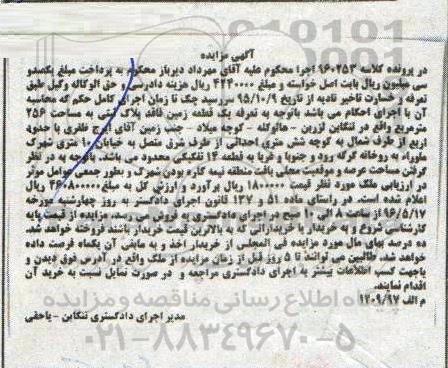 آگهی مزایده
در پرونده کلاسه ۹۶۰۲۵۳ اجرا محکوم علیه آقای مهرداد دیرباز محکوم به پرداخت مبلغ یکصدو
سی میلیون ریال بابت اصل خواسته و مبلغ ۴۴۴۰۰۰۰ ریال هزینه دادرسی و حق الوکاله وکیل طبق
تعرفه و خسارت تاخیر تادیه از تاریخ ۹۵/۱۰/۹ سررسید چک تا زمان اجرای کامل حکم که محاسبه
آن با اجرای احکام می باشد باتوجه به تعرفه یک قطعه زمین فاقد پلاک ثبتی به مساحت ۲۵۶
مترمربع واقع در تنکابن لزربن - هالوکله - کوچه میلاد - جنب زمین آقای ایرج ظفری با حدود
اربع از طرف شمال به کوچه شش متری احداثی از طرف شرق متصل به خیابان ۱۰ متری شهرک
ماوراء به رودخانه گرگه رود و جنوبا و غربا به قطعه ۱۴ تفکیکی محدود می باشد. باتوجه به در نظر
گرفتن مساحت عرصه و موقعیت محلی بافت منطقه نیمه کاره بودن شهرک و بطور جمعی عوامل موثر
در ارزیابی ملک مورد نظر قیمت ۱۸۰۰۰۰۰ ریال برآورد و ارزش کل به مبلغ ۴۶۰۸۰۰۰۰۰ ریال
اعلام شده است. در راستای ماده ۵۱ و ۱۳۷ قانون اجرای دادگستری به روز چهارشنبه مورخه
۹۶/۵/۱۷ از ساعت ۸ الی ۱۰ صبح در اجرای دادگستری به فروش می رسد. مزایده از قیمت پایه
کارشناسی شروع و به خریدار یا خریدارانی که به بالاترین قیمت خریدار باشند فروخته خواهد شد.
ده درصد بهای مال مورد مزایده فی المجلس از خریدار اخذ و به مابقی آن یکماه فرصت داده
خواهد شد. طالبین می توانند تا ۵ روز قبل از زمان مزایده از ملک واقع در آدرس فوق دیدن و
یاجهت کسب اطلاعات بیشتر به اجرای دادگستری مراجعه و در صورت تمایل نسبت به خرید آن
اقدام نمایند.
م الف ۱۲۰۹/۹۷
مدیر اجرای دادگستری تنکابن - یاحقی
پایگاه اطلاع رسانی مناقصه و مزایده
۰۲۱-۸۸۳۴۹۶۷۰-۵